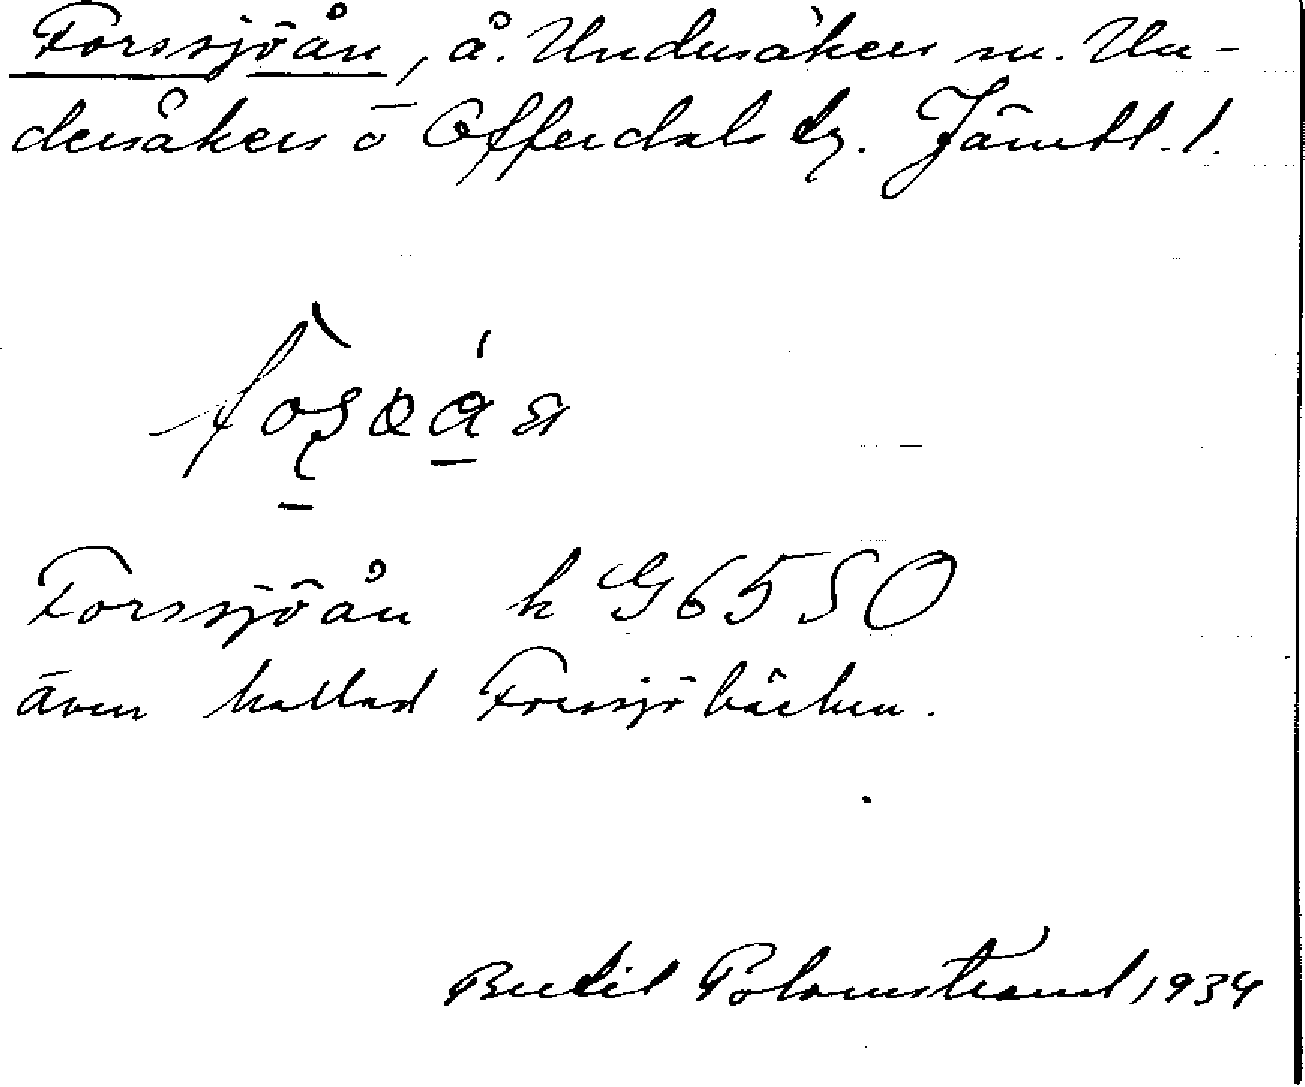 Forssjöån, å. Undersåkers sn. Un-
dersåkers o Offerdals tg. Jämtl. l.
Forssjöån k G6550
även kallad Forssjöbäcken.
Bertil 1934